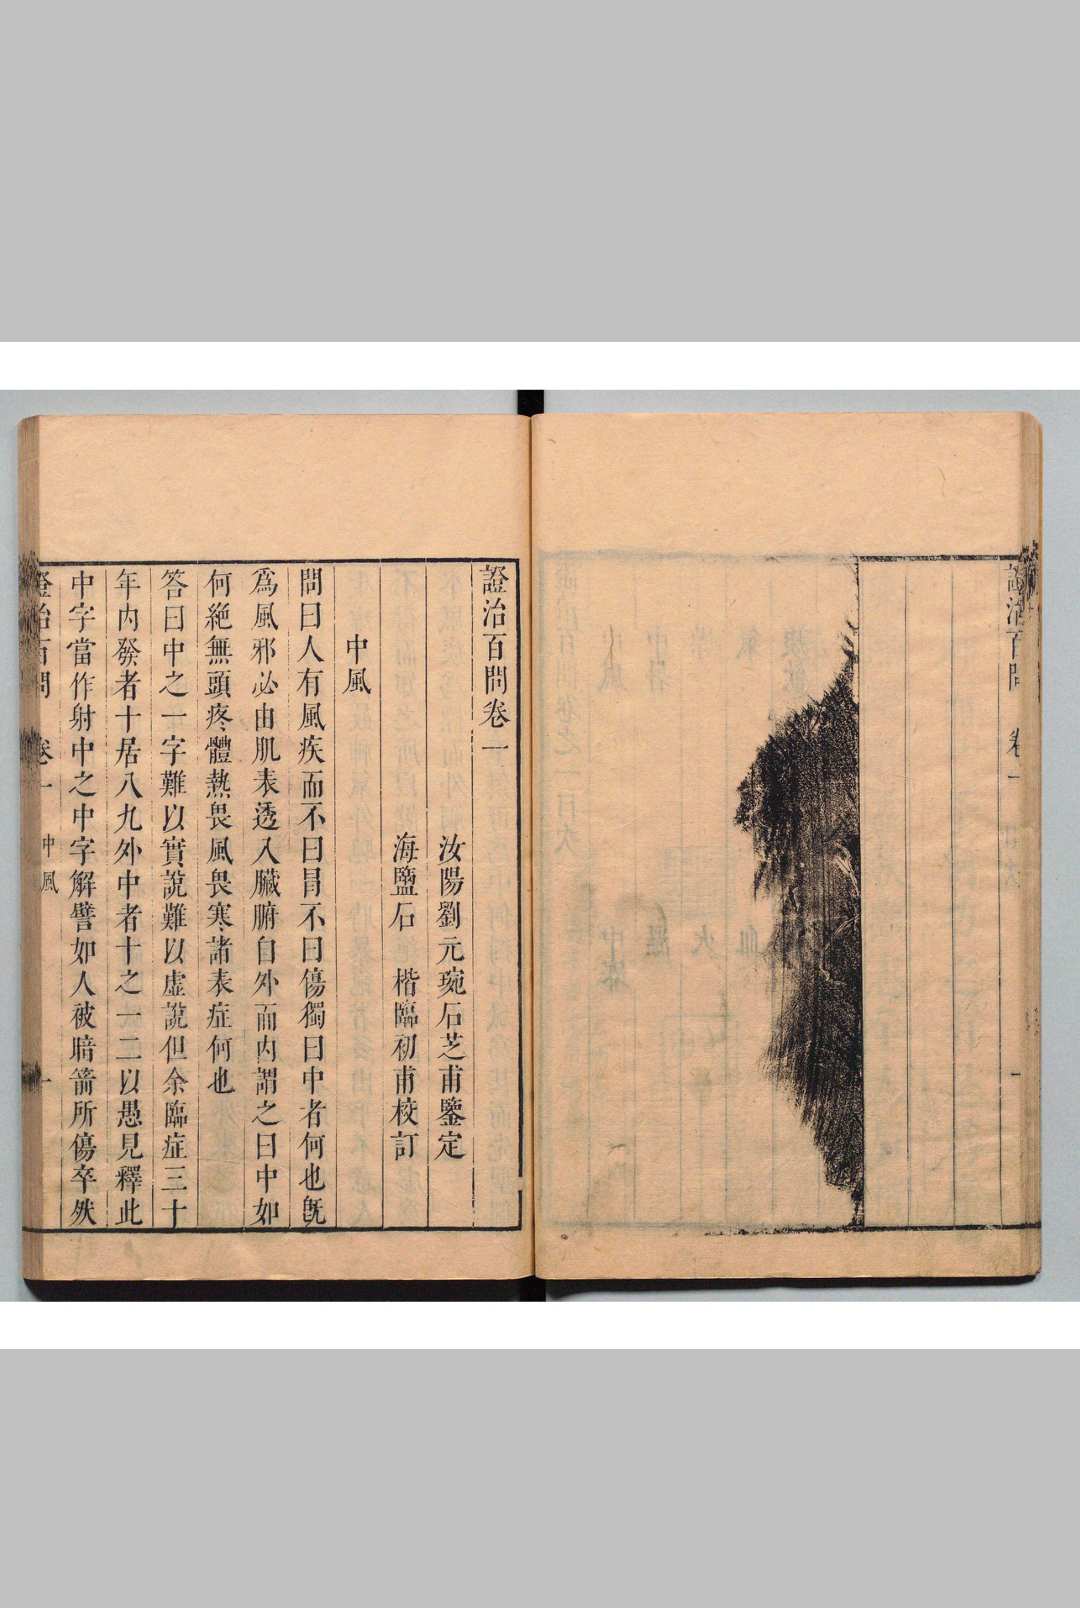 證治百問 卷一 目次 一
證治百問卷一
汝陽劉元琬石芝甫鑒定
海鹽石 楷臨初甫校訂
中風
問曰人有風疾而不曰冒不曰傷獨曰中者何也旣
爲風邪必由肌表透入臟腑自外而內謂之曰中如
何絕無頭疼體熱畏風畏寒諸表症何也
答曰中之一字難以實說難以虛說但余臨症三十
年內發者十居八九外中者十之一二以愚見釋此
中字當作射中之中字解譬如人被暗箭所傷卒然
證治百問 卷一 中風 一